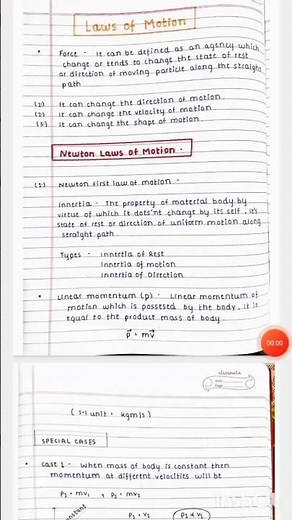 Laws of Motion
• Force - It can be defined as an agency which
change or tends to change the state of rest
or direction of moving particle along the straight
path
(1) It can change the direction of motion.
(2) It can change the velocity of motion.
(3) It can change the shape of motion.
Newton Laws of Motion -
(1) Newton first law of motion -
Innertia - The property of material body by
virtue of which it dots'nt change by its self. It's
state of rest or direction of uniform motion along
serraight path
Types - Innertia of Rest
Innertia of motion
Innertia of Direction
• Linear momentum (p) - Linear momentum of
motion which is possesed by the body. It is
equal to the product mass of body.
p⃗ = mv⃗
00:00
classmate
Date
Page
( S.I unit = kgm/s )
SPECIAL CASES
• Case 1 - When mass of body is constant then
momentum at different velocities will be
P1 = mv1 , P2 = mv2
constant
P1 = v1
P1 α v1